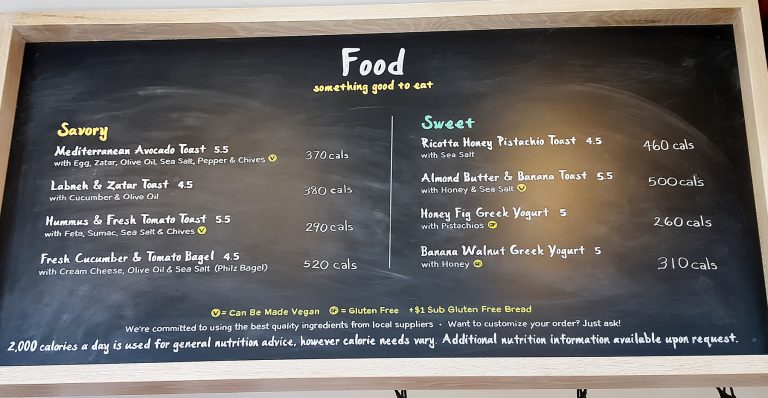 Food
something good to eat
Savory
Mediterranean Avocado Toast 5.5
with Egg, Zatar, Olive Oil, Sea Salt, Pepper & Chives V
370 cals
Labneh & Zatar Toast 4.5
with Cucumber & Olive Oil
380 cals
Hummus & Fresh Tomato Toast 5.5
with Feta, Sumac, Sea Salt & Chives V
290 cals
Fresh Cucumber & Tomato Bagel 4.5
with Cream Cheese, Olive Oil & Sea Salt (Philz Bagel)
520 cals
Sweet
Ricotta Honey Pistachio Toast 4.5
with Sea Salt
460 cals
Almond Butter & Banana Toast 5.5
with Honey & Sea Salt V
500 cals
Honey Fig Greek Yogurt 5
with Pistachios GF
260 cals
Banana Walnut Greek Yogurt 5
with Honey GF
310 cals
V = Can Be Made Vegan GF = Gluten Free +$1 Sub Gluten Free Bread
We're committed to using the best quality ingredients from local suppliers · Want to customize your order? Just ask!
2,000 calories a day is used for general nutrition advice, however calorie needs vary. Additional nutrition information available upon request.